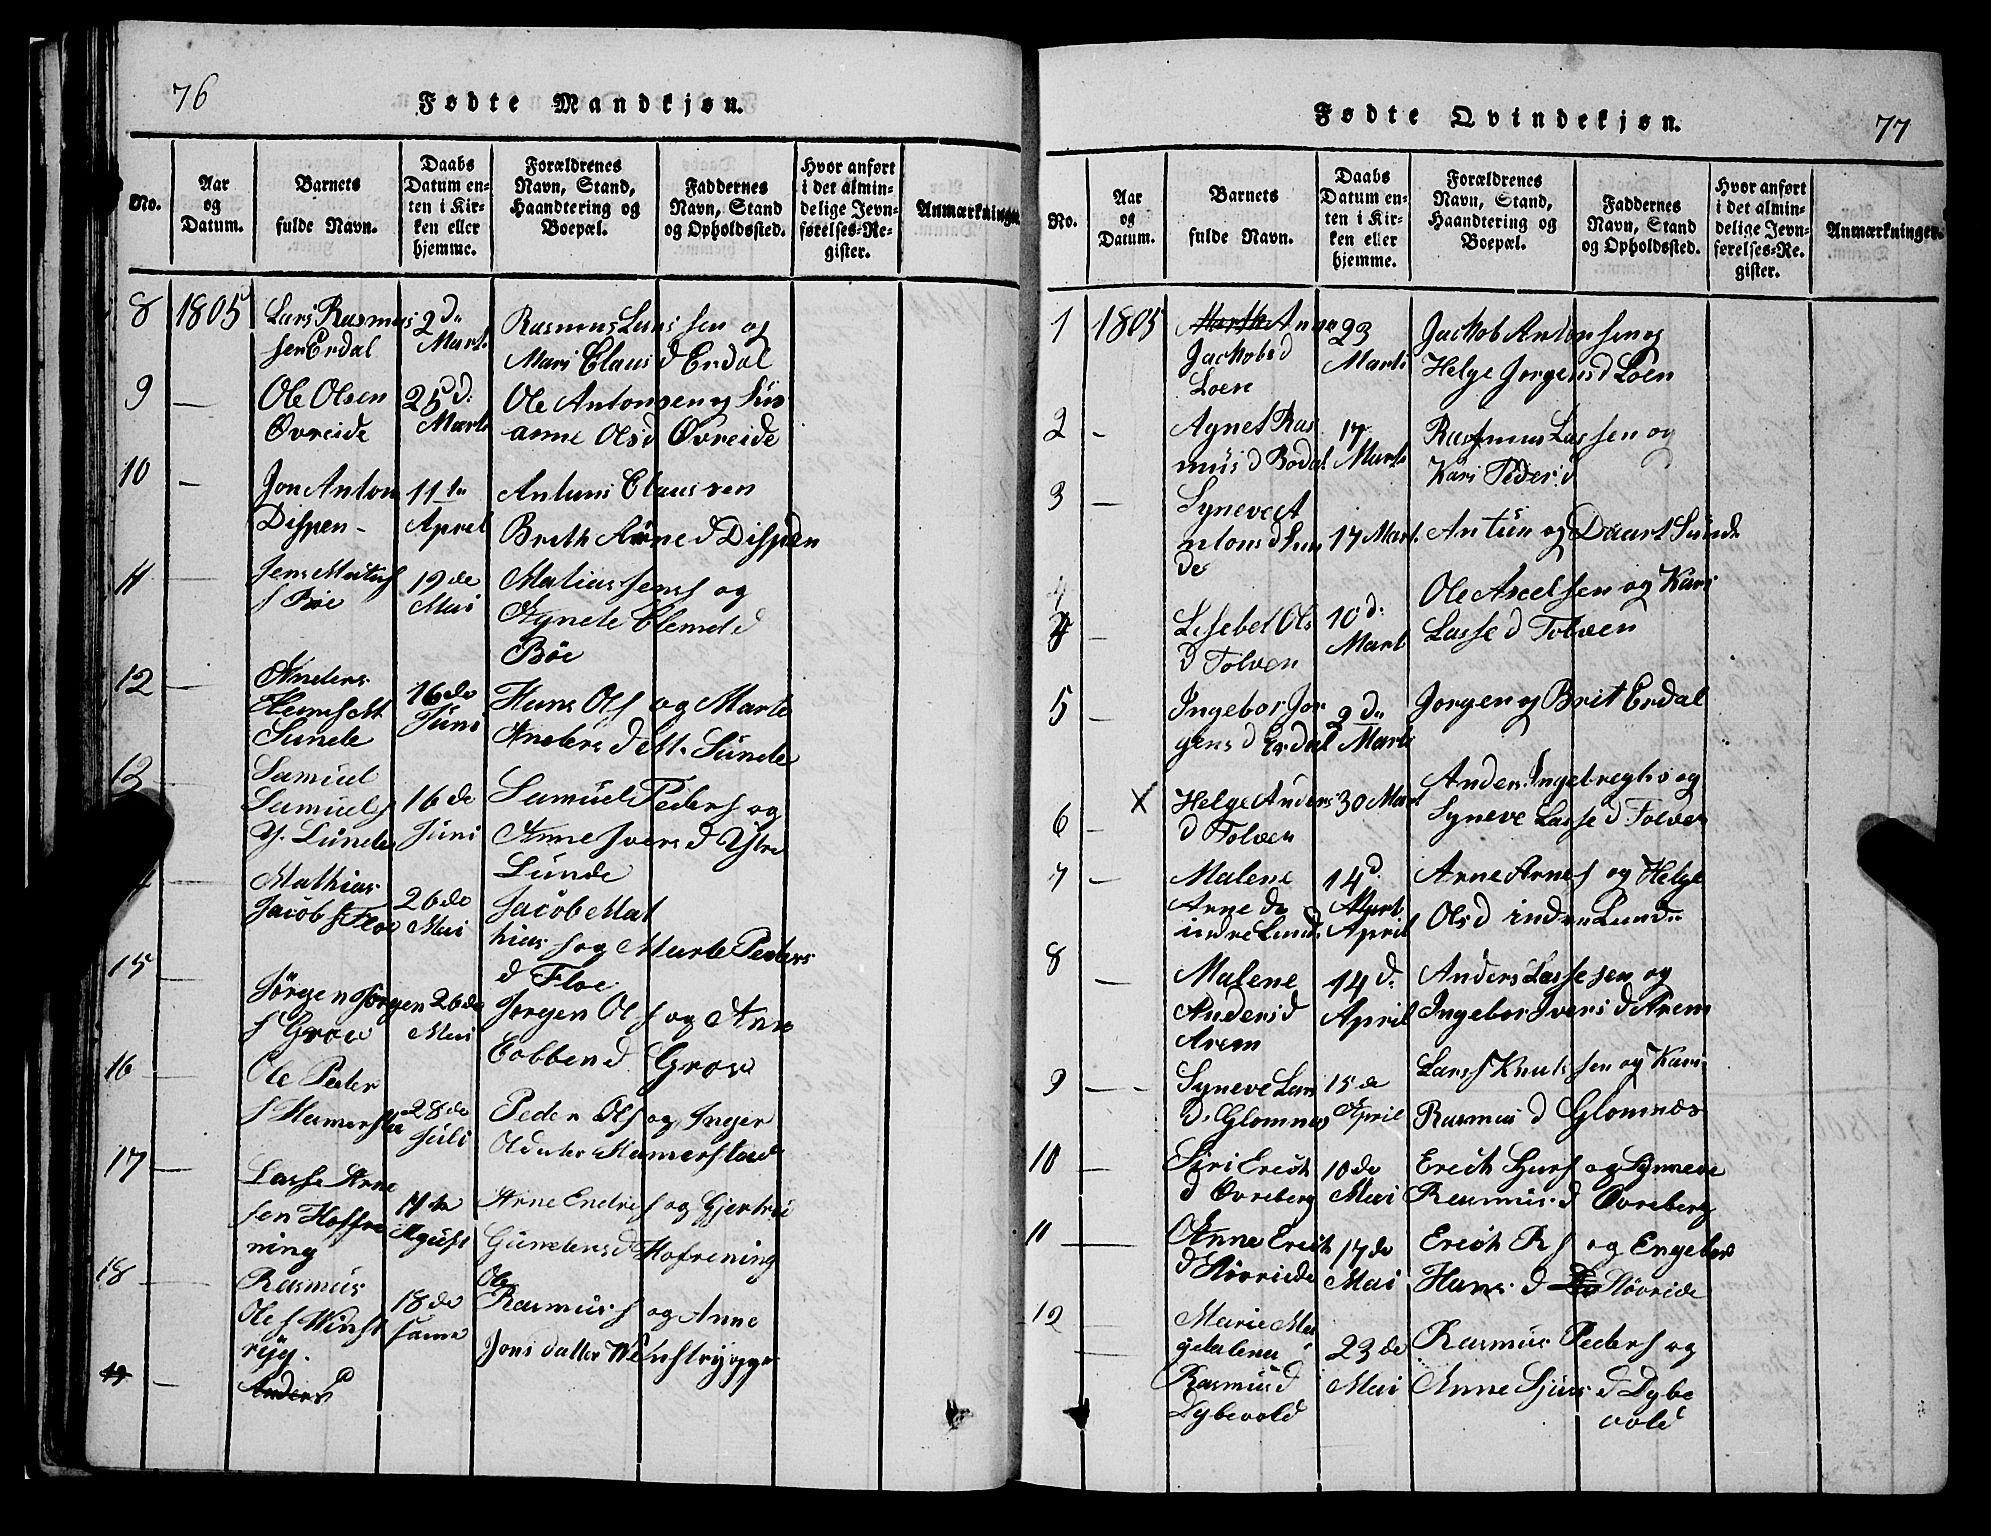 76
Fødte Mandkjøn.
No.
Aar
og
Datum.
Barnets
fulde Navn.
Daabs
Datum en-
ten i Kir-
ken eller
hjemme.
Forældrenes
Navn, Stand,
Haandtering og
Boepæl.
Faddernes
Navn, Stand
og Opholdssted.
Hvor anført
i det almin-
delige Jevn-
førelses-Re-
gister.
Anmærkninger.
8 1805 Lars Rasmus 2d
sen Erdal Marti
Rasmus Lars sen og
Mari Claus d Erdal
9 Ole Olsen 25 d:
Øvreide Marti
Ole Antonsen og
anne Olsd Øvreide
10 Jon Anton 11te
Dispen April
Antuni Claussen
Brith Arne d Dispen
11 Jens Matias 19de
s Bøe Mai
Matias Jens s og
Agnete Clemed d
Bøe
12 Anders
Hans 16de
Sunde Juni
Hans Ols og Marte
Anders d Sunde
13 Samuel
Samuels 16de
Y. Lunde Juni
Samuel Peders og
Anne Ivers d Ystre
Lunde
Mathias 26de
Jacobs Floe Mai
Jacob Mat
hias s og Marte Peders
d Floe
15 Jørgen Jørgen 26de
s Grov Mai
Jorgen Ols og Ane
Cobbend Grov
16 Ole Peder
s Hamersta 28de
Juli
Peder Ols og Inger
Oldater Hamerstad
17 Lasse Arne
sen Hoffre
ning
Arne Endres og Gjertrui
Gunders d Hofrening
18 Rasmus
Ole s Winst 18de
ryg. samme
Ole
Rasmus s og Anne
Jons datter Winstrygge
19 Anders
77
Fødte Qvindekjøn.
No.
Aar
og
Datum.
Barnets
fulde Navn.
Daabs
Datum en-
ten i Kir-
ken eller
hjemme.
Forældrenes
Navn, Stand,
Haandtering og
Boepæl.
Faddernes
Navn, Stand
og Opholdssted.
Hvor anført
i det almin-
delige Jevn-
førelses-Re-
gister.
Anmærkninger.
1 1805 Anne 23
Jackobs d Marti
Loen
Jackob Antonsen og
Helge Jorgens d Loen
2 Agnet Ras 17
mus d Bodal Marti
Rasmus Lassen og
Kari Peders d
3 Syneve A
ntons d Sun 17 Mart.
de
Antun og Daart Sunde
4 Lisebet Ols 10 d:
d Tolven Mart
Ole Axelsen og Kari
Lasse d Tolven
5 Ingebor Jor 2 d
gens d Erdal Marti
Jorgen og Brit Erdal
6 X Helge Anders 30 Mart
d Tolven
Anders Ingebregts og
Syneve Lasse d Folven
7 Malene 14 d.
Arne d Mart.
indre Lund April
Arne Arnes og Helge
Olsd indre Lunde
8 Malene 14 d:
Anders d April
Arem
Anders Lassesen og
Ingebor Ivers d Arem
9 Syneve Lars 15 de
d. Glomnes April
Lars Knutssen og Kari
Rasmus d Glomnes
10 Siri Erich 10 de
d Øvreberg Mai
Erich Sjurs og Synneve
Rasmus d Øvreberg
11 Anne Erich 17 de
d Støvriede Mai
Erich Rs og Engebor
Hans d Støvride
12 Marie Ma
gdalena 23 de
Rasmus d Mai
Dybevold
Rasmus Peders og
Anne Sjurs d Dybe
vold